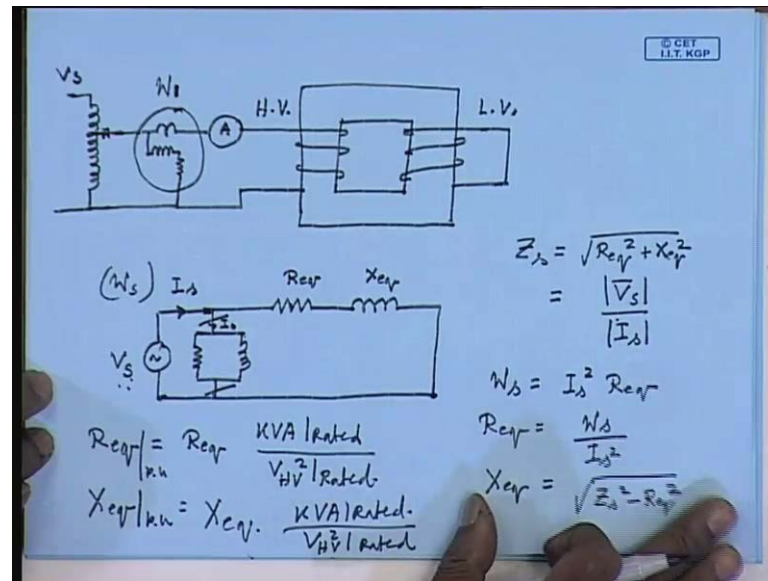 © CET
I.I.T. KGP
Vs
W1
A
H.V.
L.V.
(Ws) Is
Req
Xeq
Io
Vs
~
Zs = √Req² + Xeq²
= |V̅s| / |I̅s|
Ws = Is² Req
Req = Ws / Is²
Xeq = √Zs² - Req²
Req|p.u = Req KVA|Rated / V²HV|Rated.
Xeq|p.u = Xeq. KVA|Rated. / V²HV|rated